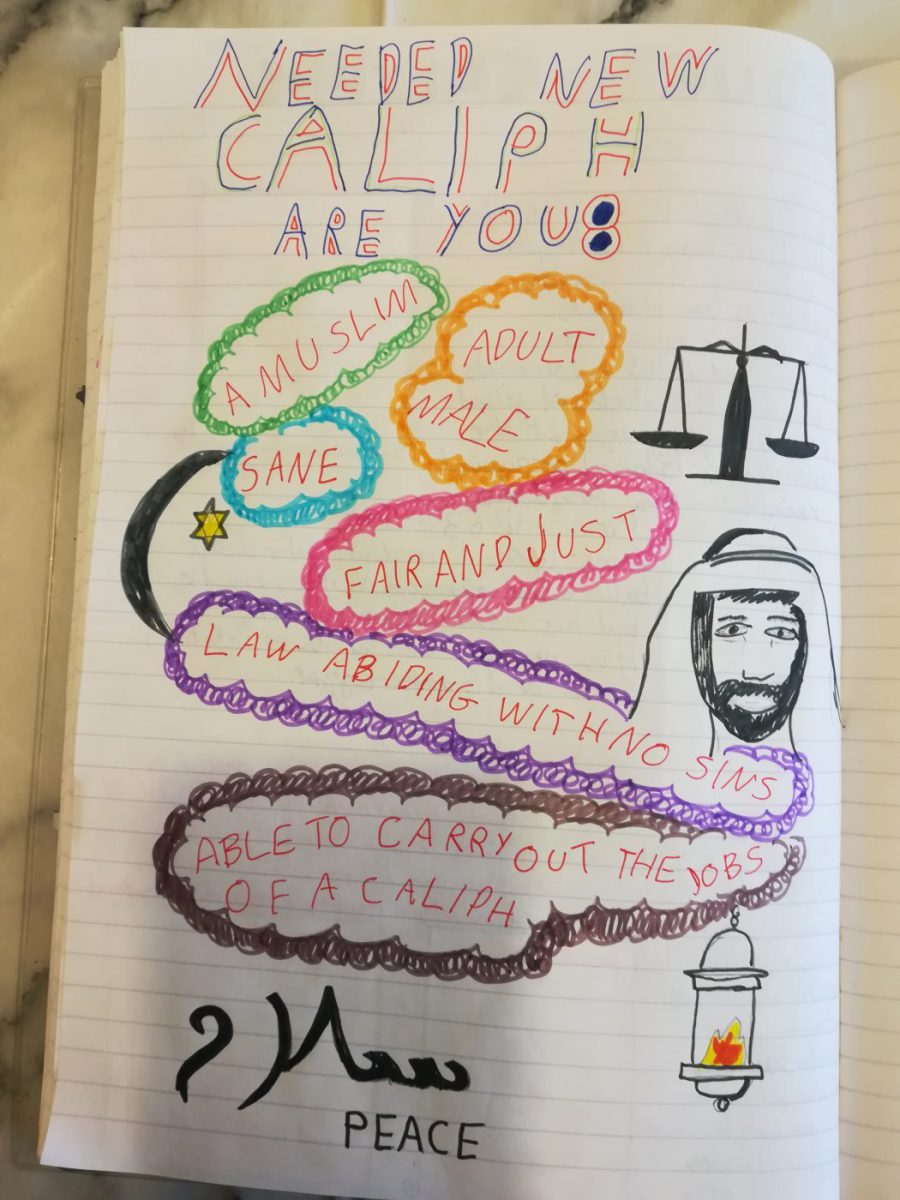 NEEDED NEW
CALIPH
ARE YOU:
A MUSLIM
ADULT
MALE
SANE
FAIR AND JUST
LAW ABIDING WITH NO SINS
ABLE TO CARRY OUT THE JOBS
OF A CALIPH
سلام
PEACE